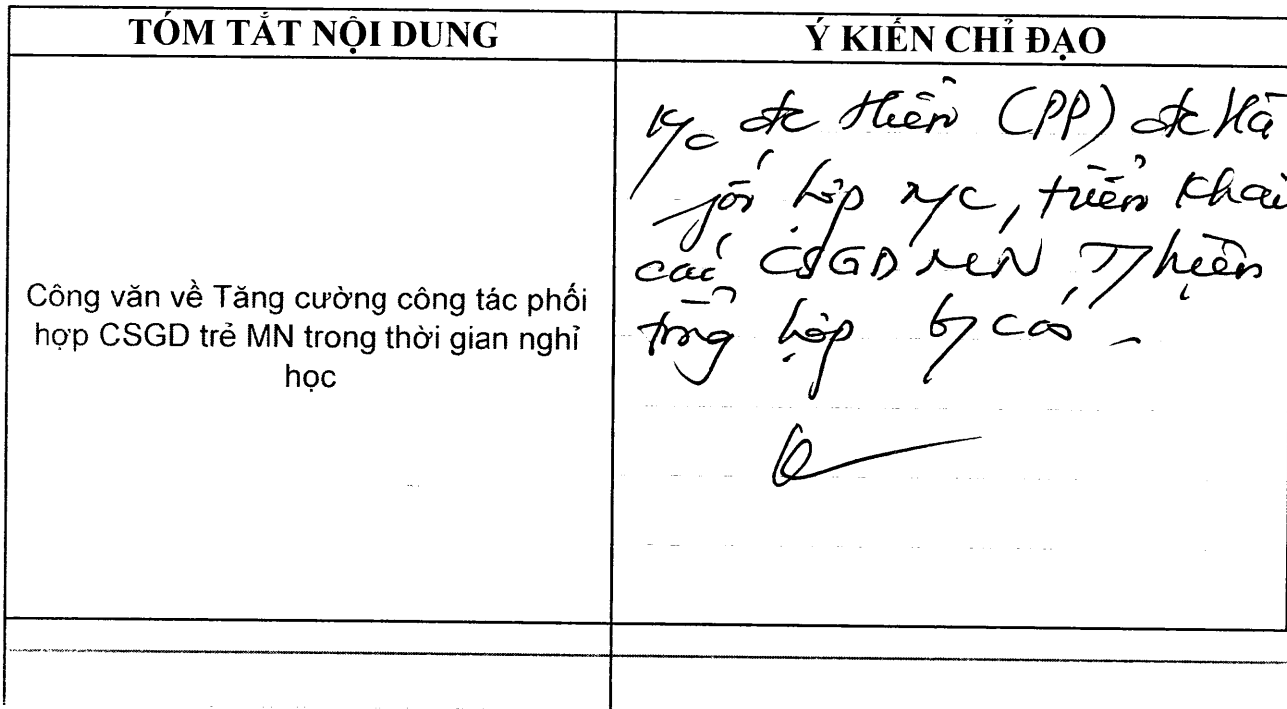 TÓM TẮT NỘI DUNG
Ý KIẾN CHỈ ĐẠO
Công văn về Tăng cường công tác phối
hợp CSGD trẻ MN trong thời gian nghỉ
học
Y/c đ/c Hiền (PP) đ/c Hà
hợp n/c, triển khai
các CSGD MN T/hiện
tổng hợp b/cáo